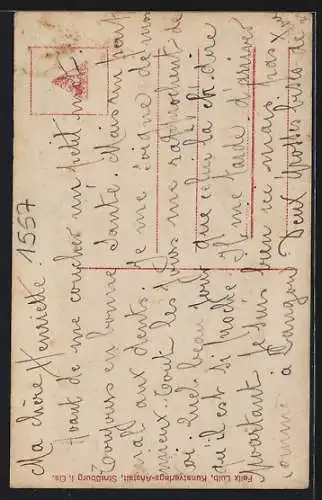 Ma chère Henriette. 1557
Avant de me coucher un petit mot.
Toujours en bonne santé. Mais un peu
mal aux dents. Je me soigne de mon
mieux. Tout les jours me rapprochent de
toi. Quel beau jour que celui là dire
qu'il est si proche. Il me tarde d'arriver
pourtant je suis bien ici mais pas
comme à Langon. Deux grosses bises de
Felix Luib, Kunstverlags-Anstalt, Straßburg i. Els.